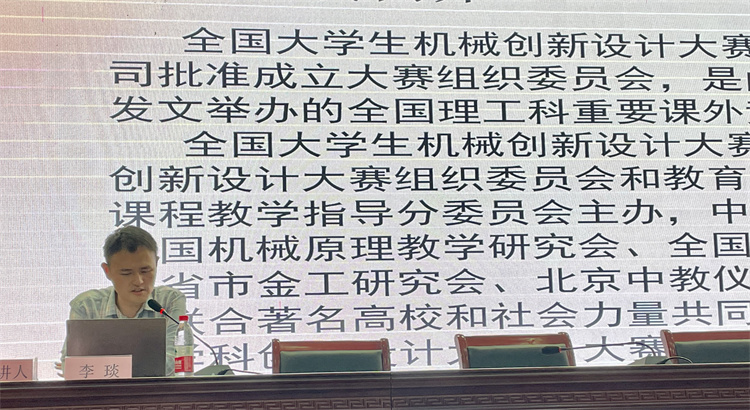 全国大学生机械创新设计大赛
司批准成立大赛组织委员会，是
发文举办的全国理工科重要课外
全国大学生机械创新设计大赛
创新设计大赛组织委员会和教育
课程教学指导分委员会主办，中
国机械原理教学研究会、全国
省市金工研究会、北京中教仪
联合著名高校和社会力量共同
学科创 设计 大赛
讲人
李琰